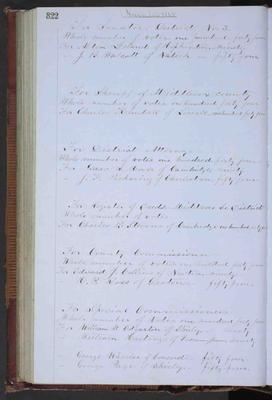 822
For Senator District No 3
Whole number of votes one hundred forty four
For Alden Leland of Holliston ninety
" J. B. Walcott of Natick fifty four
For Sheriff of Middlesex county
Whole number of votes one hundred forty four
For Charles Kimball of Lowell one hundred forty four
For District Attorney
Whole number of votes one hundred forty four
For Isaac S. Morse of Cambridge ninety
" J. Q. of fifty four
For Register of Deeds Middlesex So District
Whole number of votes
For Charles B. Stevens of Cambridge one hundred forty four
For County Commissioner
Whole number of votes one hundred forty four
For Edward J. Collins of Newton ninety
" Ross of fifty four
For Special Commissioners
Whole number of votes one hundred forty four
For William H. of ninety
William Hastings of Framingham ninety
George Wheeler of Concord fifty four
George Page of Shirley fifty four